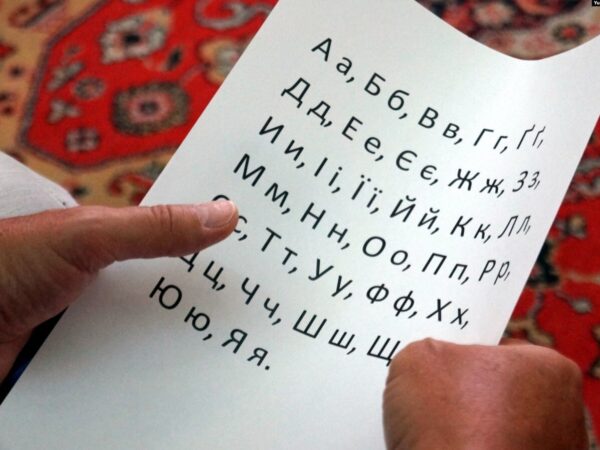 Аа, Бб, Вв, Гг, Ґґ,
Дд, Ее, Єє, Жж, Зз,
Ии, Іі, Її, Йй, Кк, Лл,
Мм, Нн, Оо, Пп, Рр,
Сс, Тт, Уу, Фф, Хх,
Цц, Чч, Шш, Щ
Юю, Яя.